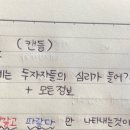 (캔들)
는 투자자들의 심리가 들어가
+ 모든 정보
갈고 파랗다 만 나타내는것이